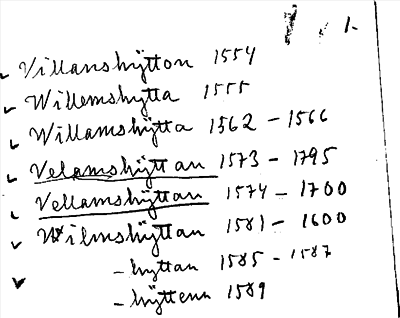 1.
Villanshÿtton 1554
Willemshytta 1555
Willamshÿtta 1562 - 1566
Velamshÿttan 1573 - 1795
Vellamshÿttan 1574 - 1700
Wilmshÿttan 1581 - 1600
- hyttan 1585 - 1587
- hÿttenn 1589